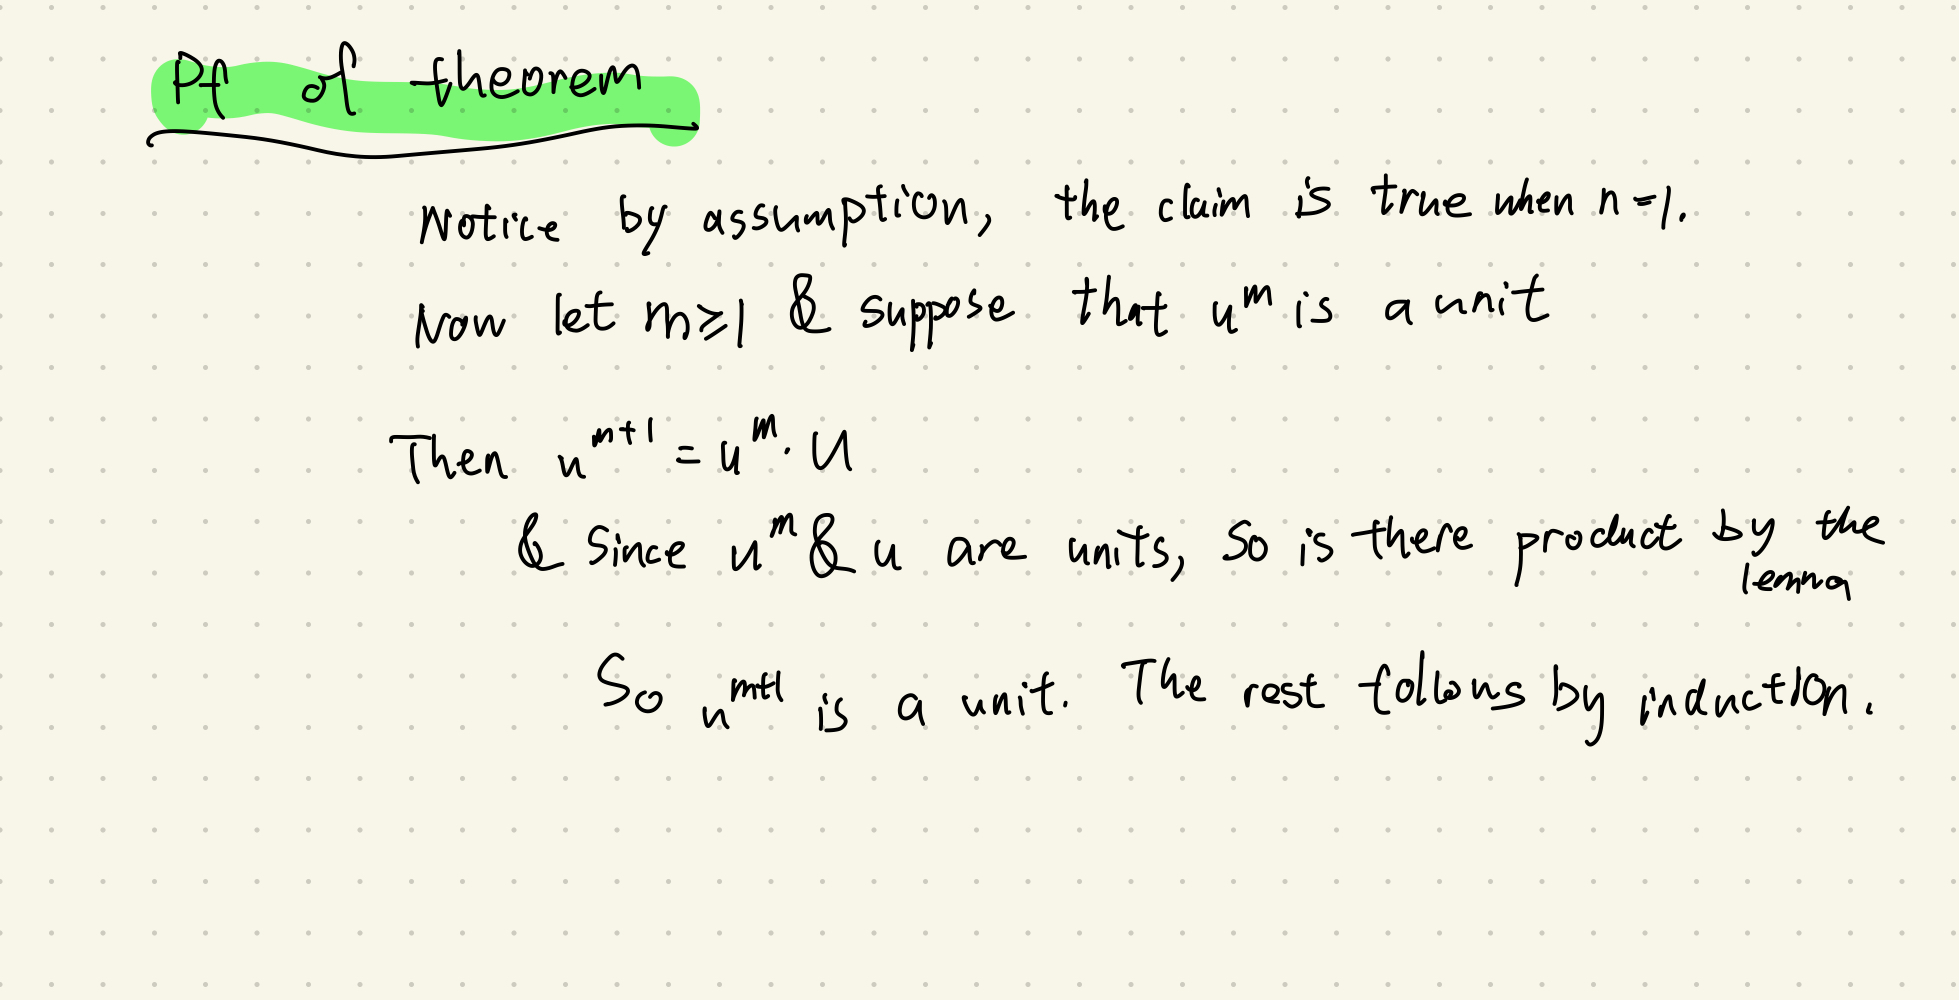 Pf of theorem
Notice by assumption, the claim is true when n=1.
Now let m≥1 & suppose that u^m is a unit
Then u^{m+1} = u^m · u
& since u^m & u are units, so is there product by the
lemma
So u^{m+1} is a unit. The rest follows by induction.